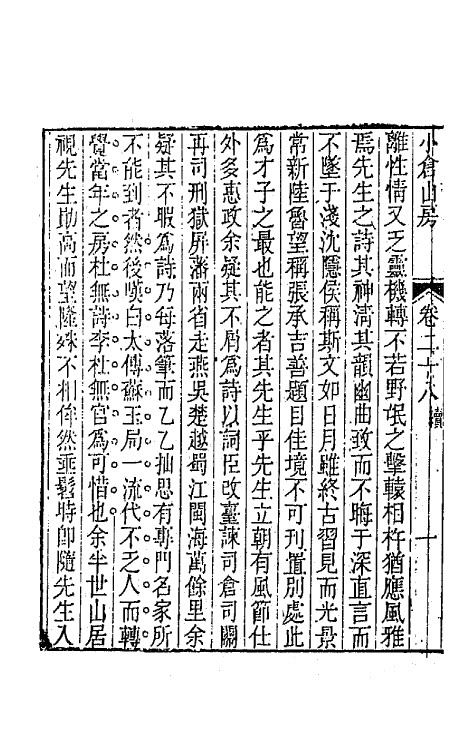 小倉山房 卷二十八 續 一
離性情又乏靈機轉不若野氓之擊轅相杵猶應風雅
焉先生之詩其神淸其韻幽曲致而不晦于深直言而
不墜于淺沈隱侯稱斯文如日月雖終古習見而光景
常新陸魯望稱張承吉善題目佳境不可刊置別處此
爲才子之最也能之者其先生乎先生立朝有風節仕
外多惠政余疑其不屑爲詩以詞臣改臺諫司倉司關
再司刑獄屏藩兩省走燕吳楚越蜀江閩海萬餘里余
疑其不暇爲詩乃每落筆而乙乙抽思有專門名家所
不能到者然後嘆白太傅蘇玉局一流代不乏人而轉
覺當年之房杜無詩李杜無官爲可惜也余半世山居
視先生助高而望隆殊不相侔然垂髫時卽隨先生入